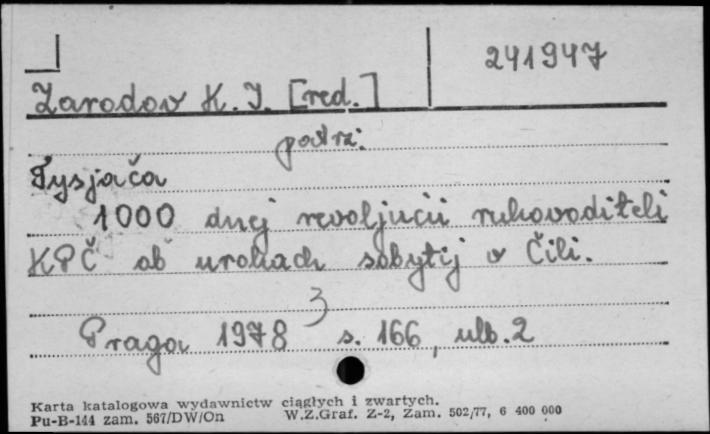 241947
Zarodov K. I. [red.]
patrz:
Tysjača
1000 dnej revoljucii rukovoditeli
KPČ ob urokach sobytij v Čili.
Praga 1978 s. 166, ulb. 2
Karta katalogowa wydawnictw ciągłych i zwartych.
Pu-B-144 zam. 567/DW/On W.Z.Graf. Z-2, Zam. 502/77, 6 400 000